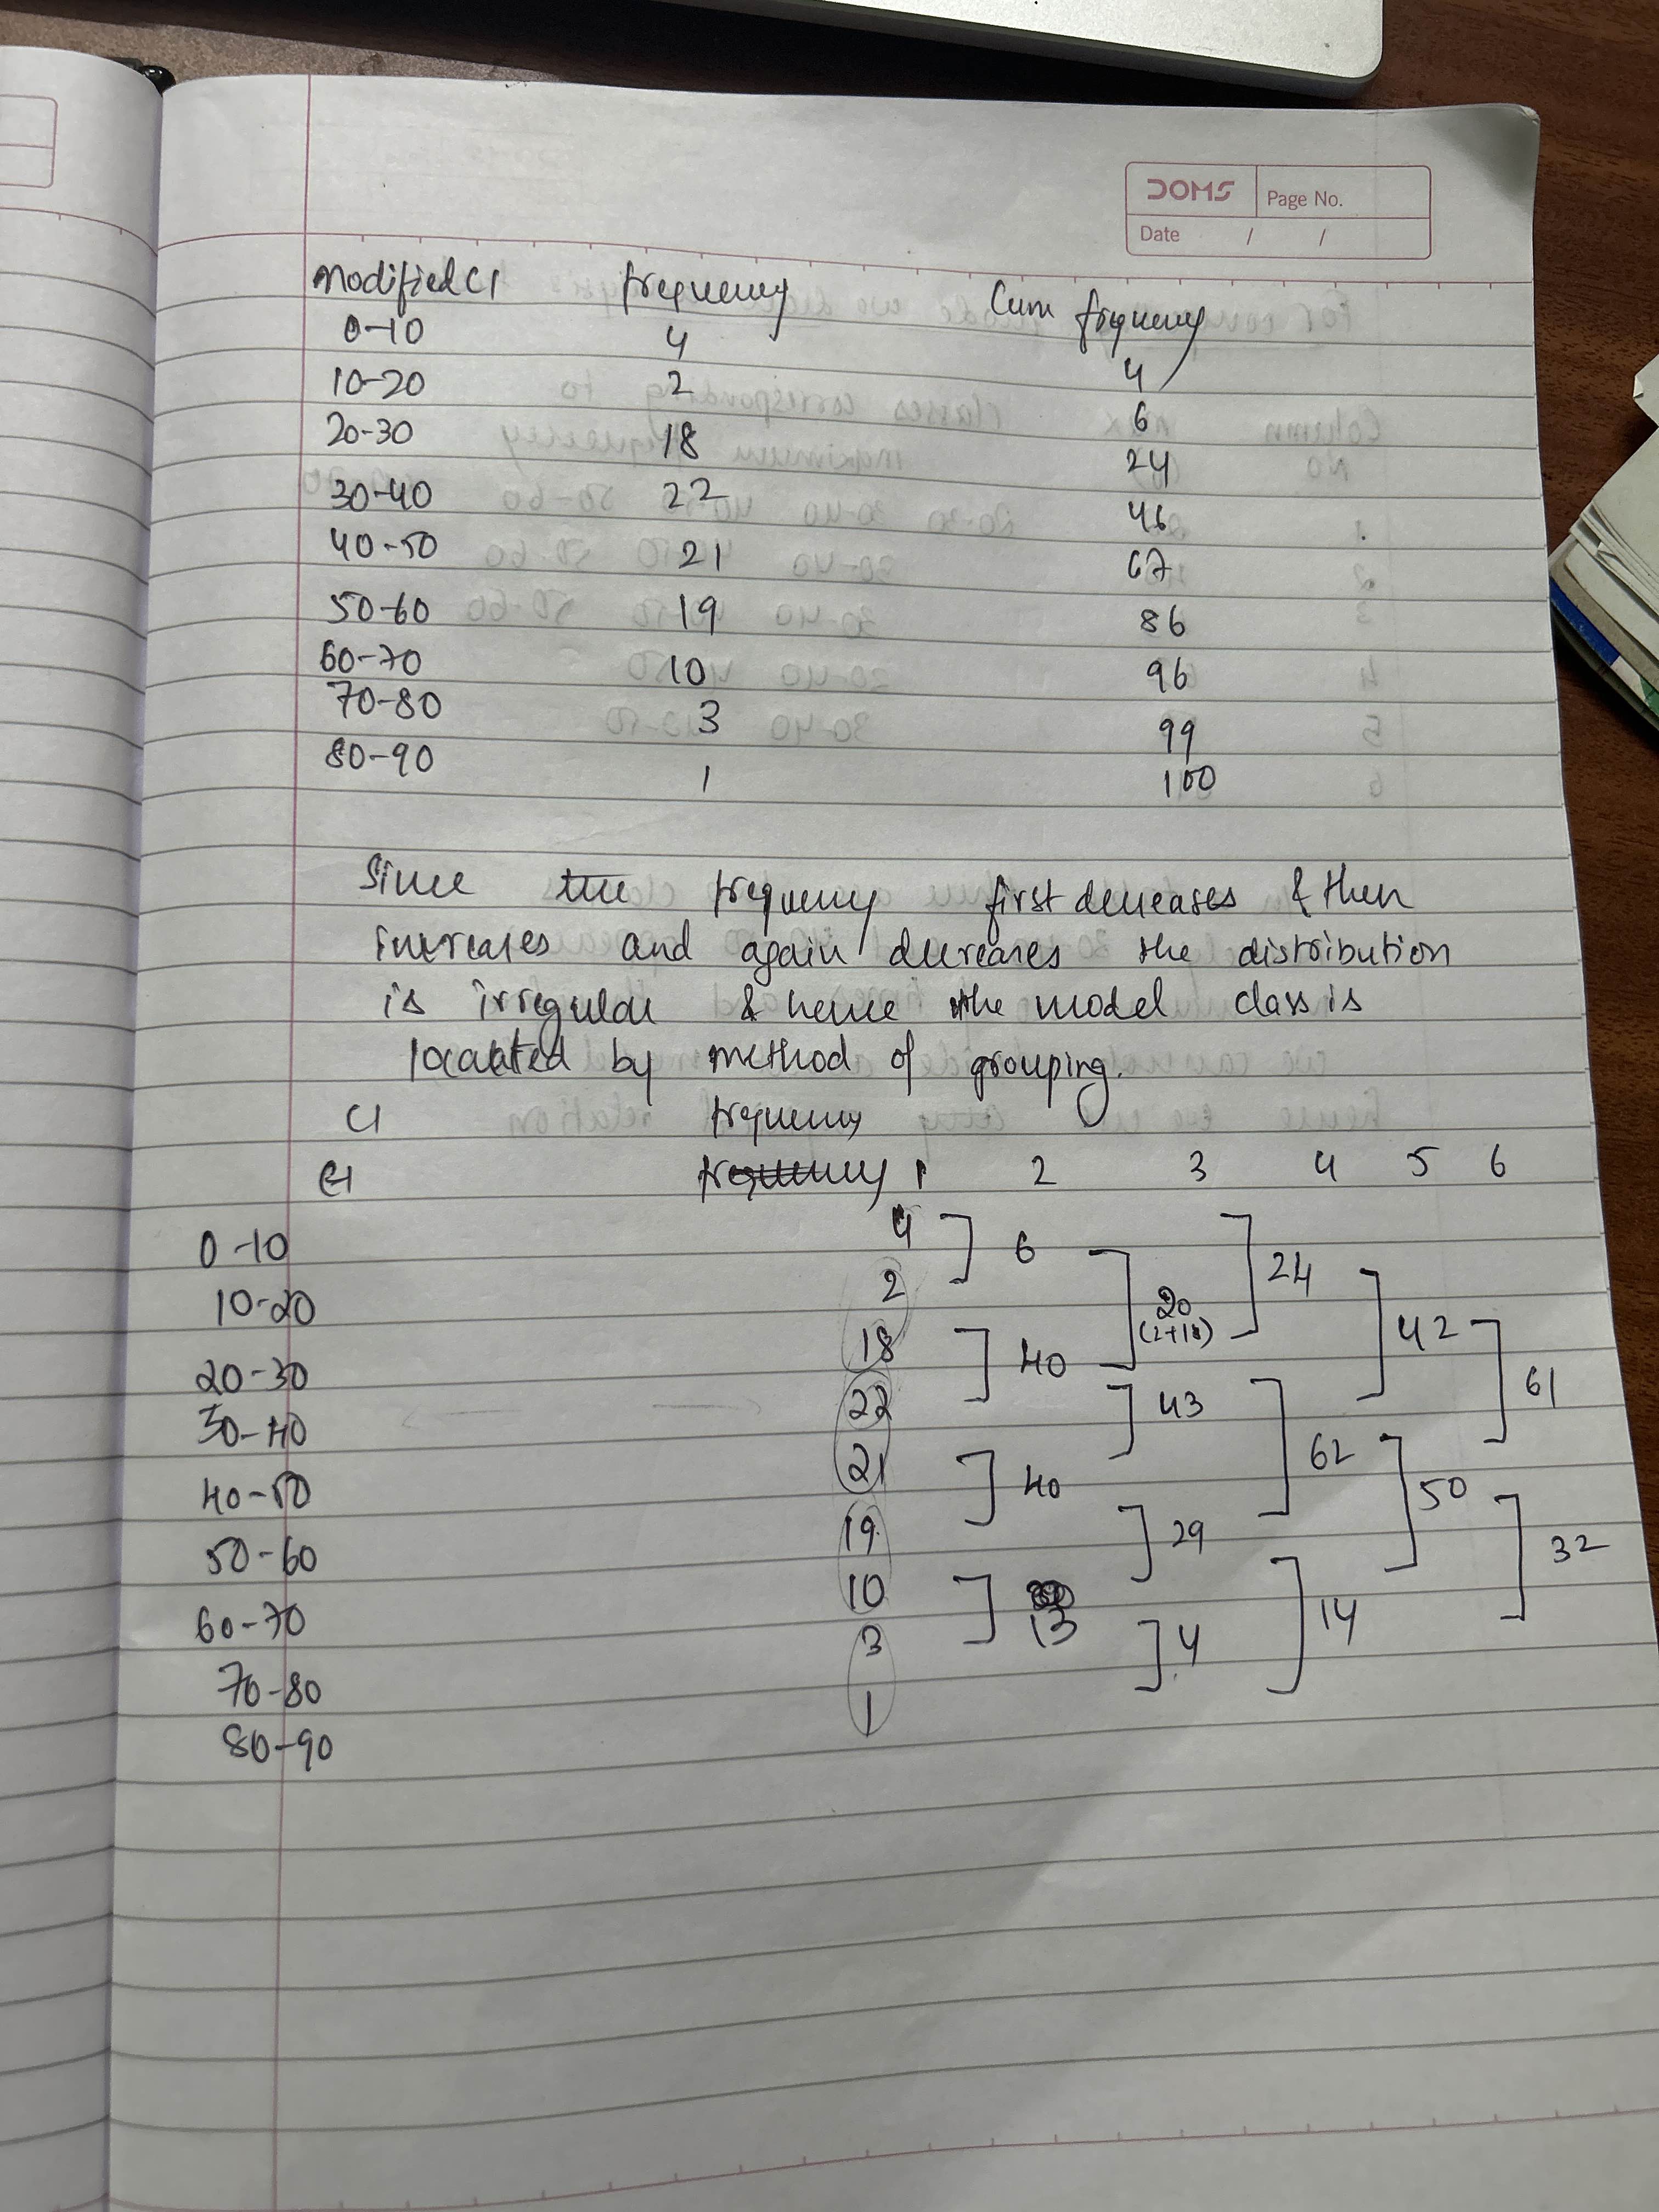 DOMS Page No.
Date / /
Modified CI frequency Cum frequency
0-10 4 4
10-20 2 6
20-30 18 24
30-40 22 46
40-50 21 67
50-60 19 86
60-70 10 96
70-80 3 99
80-90 1 100
Since the frequency first decreases & then
increases and again decreases the distribution
is irregular & hence the model class is
located by method of grouping.
CI frequency
CI frequency 1 2 3 4 5 6
0-10 4 6 24
10-20 2 20 (2+18) 42
20-30 18 40 61
30-40 22 43 62
40-50 21 40 50
50-60 19 29 32
60-70 10 13 14
70-80 3 4
80-90 1